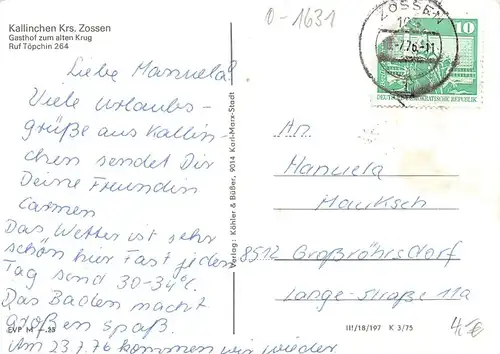 Kallinchen Krs. Zossen
Gasthof zum alten Krug
Ruf Töpchin 264
0-1631
ZOSSEN
-7.76-11
10
DEUTSCHE DEMOKRATISCHE REPUBLIK
Liebe Manuela!
Viele Urlaubs-
grüße aus Kallin-
chen sendet Dir
Deine Freundin
Carmen
Das Wetter ist sehr
schön hier Fast jeden
Tag send 30-34°C.
Das Baden macht
großen spaß.
Am 23.7.76 kommen wir wieder
Verlag: Köhler & Büßer, 9014 Karl-Marx-Stadt
An
Manuela
Hauksch
8512 Großröhrsdorf
Lange-Straße 11a
EVP M -,25
III/18/197 K 3/75